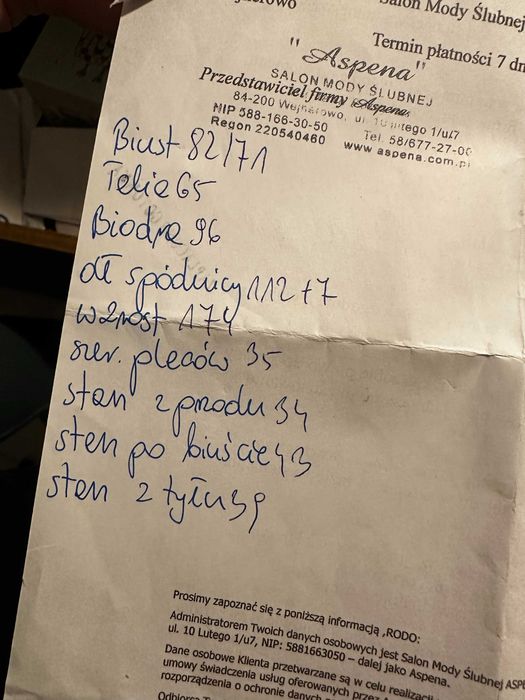 Salon Mody Ślubnej
Termin płatności 7 dn
"Aspena"
SALON MODY ŚLUBNEJ
Przedstawiciel firmy Aspena
84-200 Wejherowo, ul. 10 lutego 1/u7
NIP 588-166-30-50 Tel. 58/677-27-00
Regon 220540460 www.aspena.com.pl
Biust 82/71
Talia 65
Biodra 96
dł spódnicy 112+7
wzrost 174
szer. pleców 35
stan z przodu 34
stan po biuście 43
stan z tyłu 39
Prosimy zapoznać się z poniższą informacją ,RODO:
Administratorem Twoich danych osobowych jest Salon Mody Ślubnej ASPE
ul. 10 Lutego 1/u7, NIP: 5881663050 – dalej jako Aspena.
Dane osobowe Klienta przetwarzane są w celu realizacji
umowy świadczenia usług oferowanych przez
rozporządzenia o ochronie danych